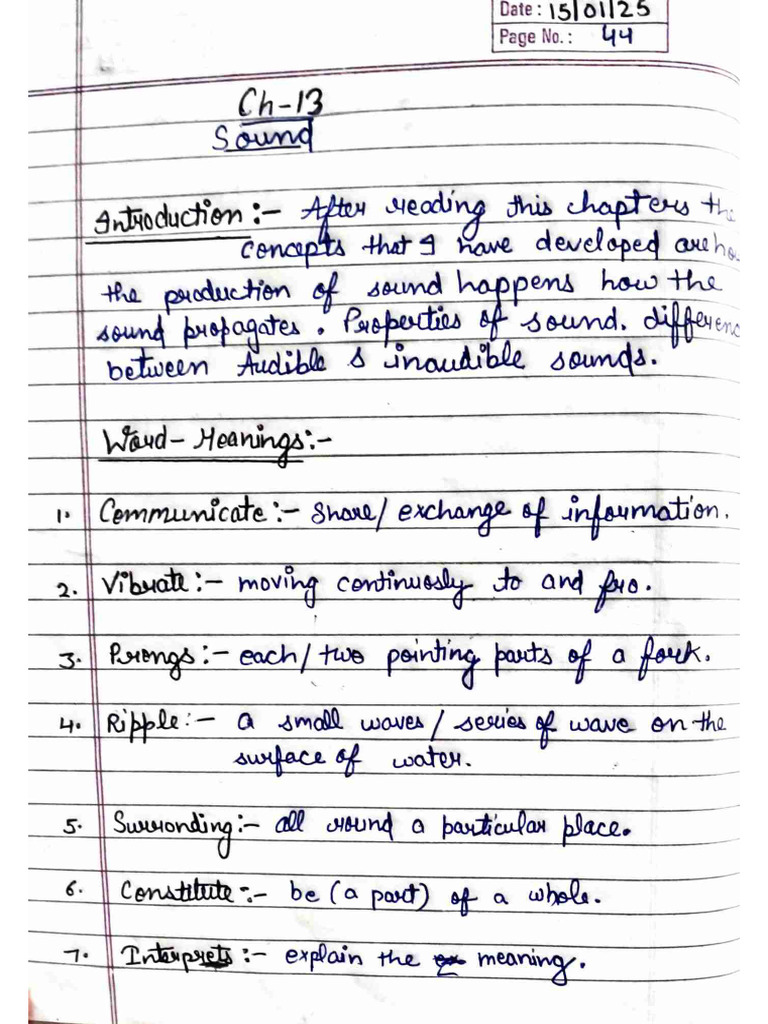 Date : 15/01/25
Page No. : 44
Ch-13
Sound
Introduction :- After reading this chapters the
concepts that I have developed are how
the production of sound happens how the
sound propagates. Properties of sound. differenc
between Audible & inaudible sounds.
Word-Meanings:-
1. Communicate :- Share/ exchange of information.
2. Vibrate :- moving continuosly to and fro.
3. Prongs :- each/ two pointing parts of a fork.
4. Ripple :- a small waves/ series of wave on the
surface of water.
5. Surronding :- all round a particular place.
6. Constitute :- be (a part) of a whole.
7. Interprets :- explain the meaning.